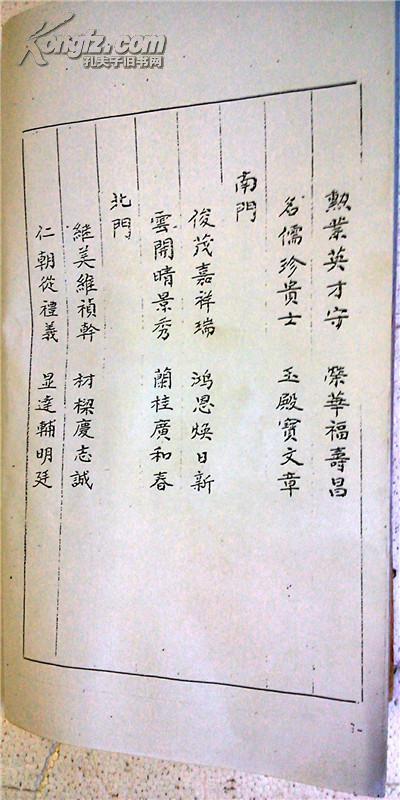 Kongfz.com
孔夫子旧书网
勲業英才守 榮華福壽昌
名儒珍贵士 玉殿宝文章
南門
俊茂嘉祥瑞 鸿恩焕日新
雲開晴景秀 蘭桂廣和春
北門
継美維禎幹 材樑慶志誠
仁朝從禮義 显達輔明廷